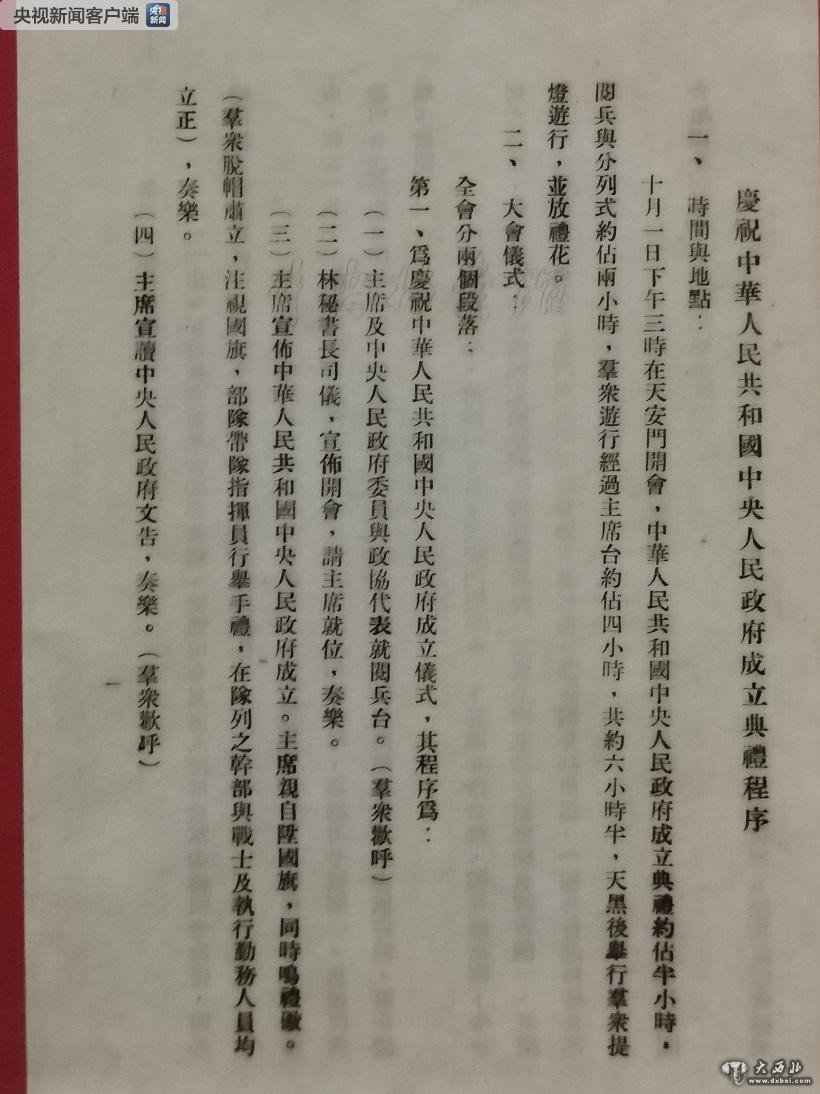 央视新闻客户端
央视
新闻
慶祝中華人民共和國中央人民政府成立典禮程序
一、時間與地點：
十月一日下午三時在天安門開會，中華人民共和國中央人民政府成立典禮約佔半小時，
閱兵與分列式約佔兩小時，羣衆遊行經過主席台約佔四小時，共約六小時半，天黑後舉行羣衆提
燈遊行，並放禮花。
二、大會儀式：
全會分兩個段落：
第一、爲慶祝中華人民共和國中央人民政府成立儀式，其程序爲：
（一）主席及中央人民政府委員與政協代表就閱兵台。（羣衆歡呼）
（二）林秘書長司儀，宣佈開會，請主席就位，奏樂。
（三）主席宣佈中華人民共和國中央人民政府成立。主席親自陞國旗，同時鳴禮礮。
（羣衆脫帽肅立，注視國旗，部隊帶隊指揮員行舉手禮，在隊列之幹部與戰士及執行勤務人員均
立正），奏樂。
（四）主席宣讀中央人民政府文告，奏樂。（羣衆歡呼）
一
大西北
www.dxbei.com